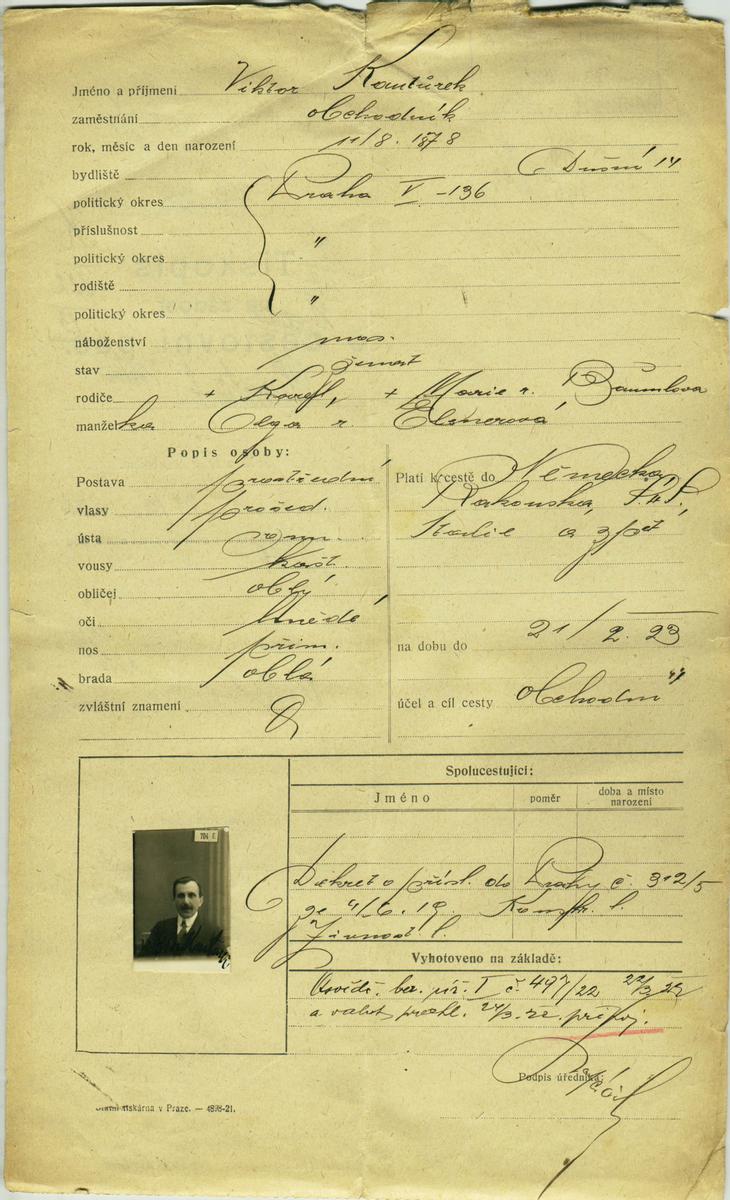 Jméno a příjmení Viktor Kantůrek
zaměstnání obchodník
rok, měsíc a den narození 11/8. 1878
bydliště Dušní 14
politický okres Praha V - 136
příslušnost
politický okres "
rodiště
politický okres "
náboženství
stav ženat
rodiče + Karel, + Marie r. Bäumlova
manželka Olga r. Elsnerová
Popis osoby:
Postava prostřední
vlasy prošed.
ústa
vousy kašt.
obličej oblý
oči hnědé
nos přím.
brada oblá
zvláštní znamení
Platí k cestě do Německa,
Rakouska,
Italie a zpět
na dobu do 21/2. 23
účel a cíl cesty obchodní
704 E
Spolucestující:
Jméno poměr doba a místo narození
Dekret o přísl. do Prahy č. 312/5
ze 4/6. 19. Konskr. l.
Živnost. l.
Vyhotoveno na základě:
Osvědč. ber. I č. 497/22 22/3 22
a valut. prohl. 24/3. 22.
Podpis úředníka:
Státní tiskárna v Praze. — 4898-21.